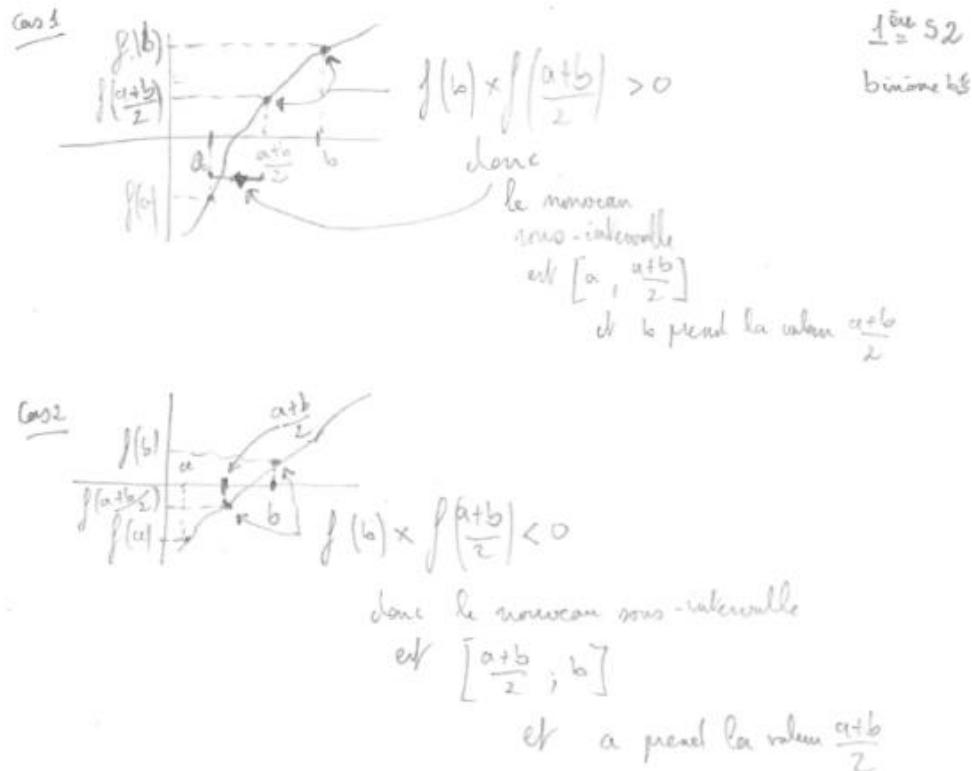 Cas 1
1ère S2
binôme
f(b)
f(a+b/2)
f(a)
a
a+b/2
b
f(b) × f(a+b/2) > 0
donc
le nouveau
sous-intervalle
est [a, a+b/2]
et b prend la valeur a+b/2
Cas 2
a+b/2
f(b)
a
f(a+b/2)
f(a)
b
f(b) × f(a+b/2) < 0
donc le nouveau sous-intervalle
est [a+b/2 ; b]
et a prend la valeur a+b/2